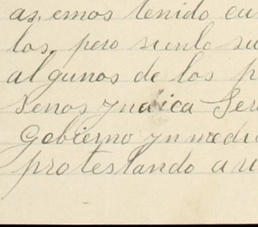 as, emos tenido en
los, pero siento su
algunos de los p
senos yndica Ser
Gobierno ynmedi
protestando a u